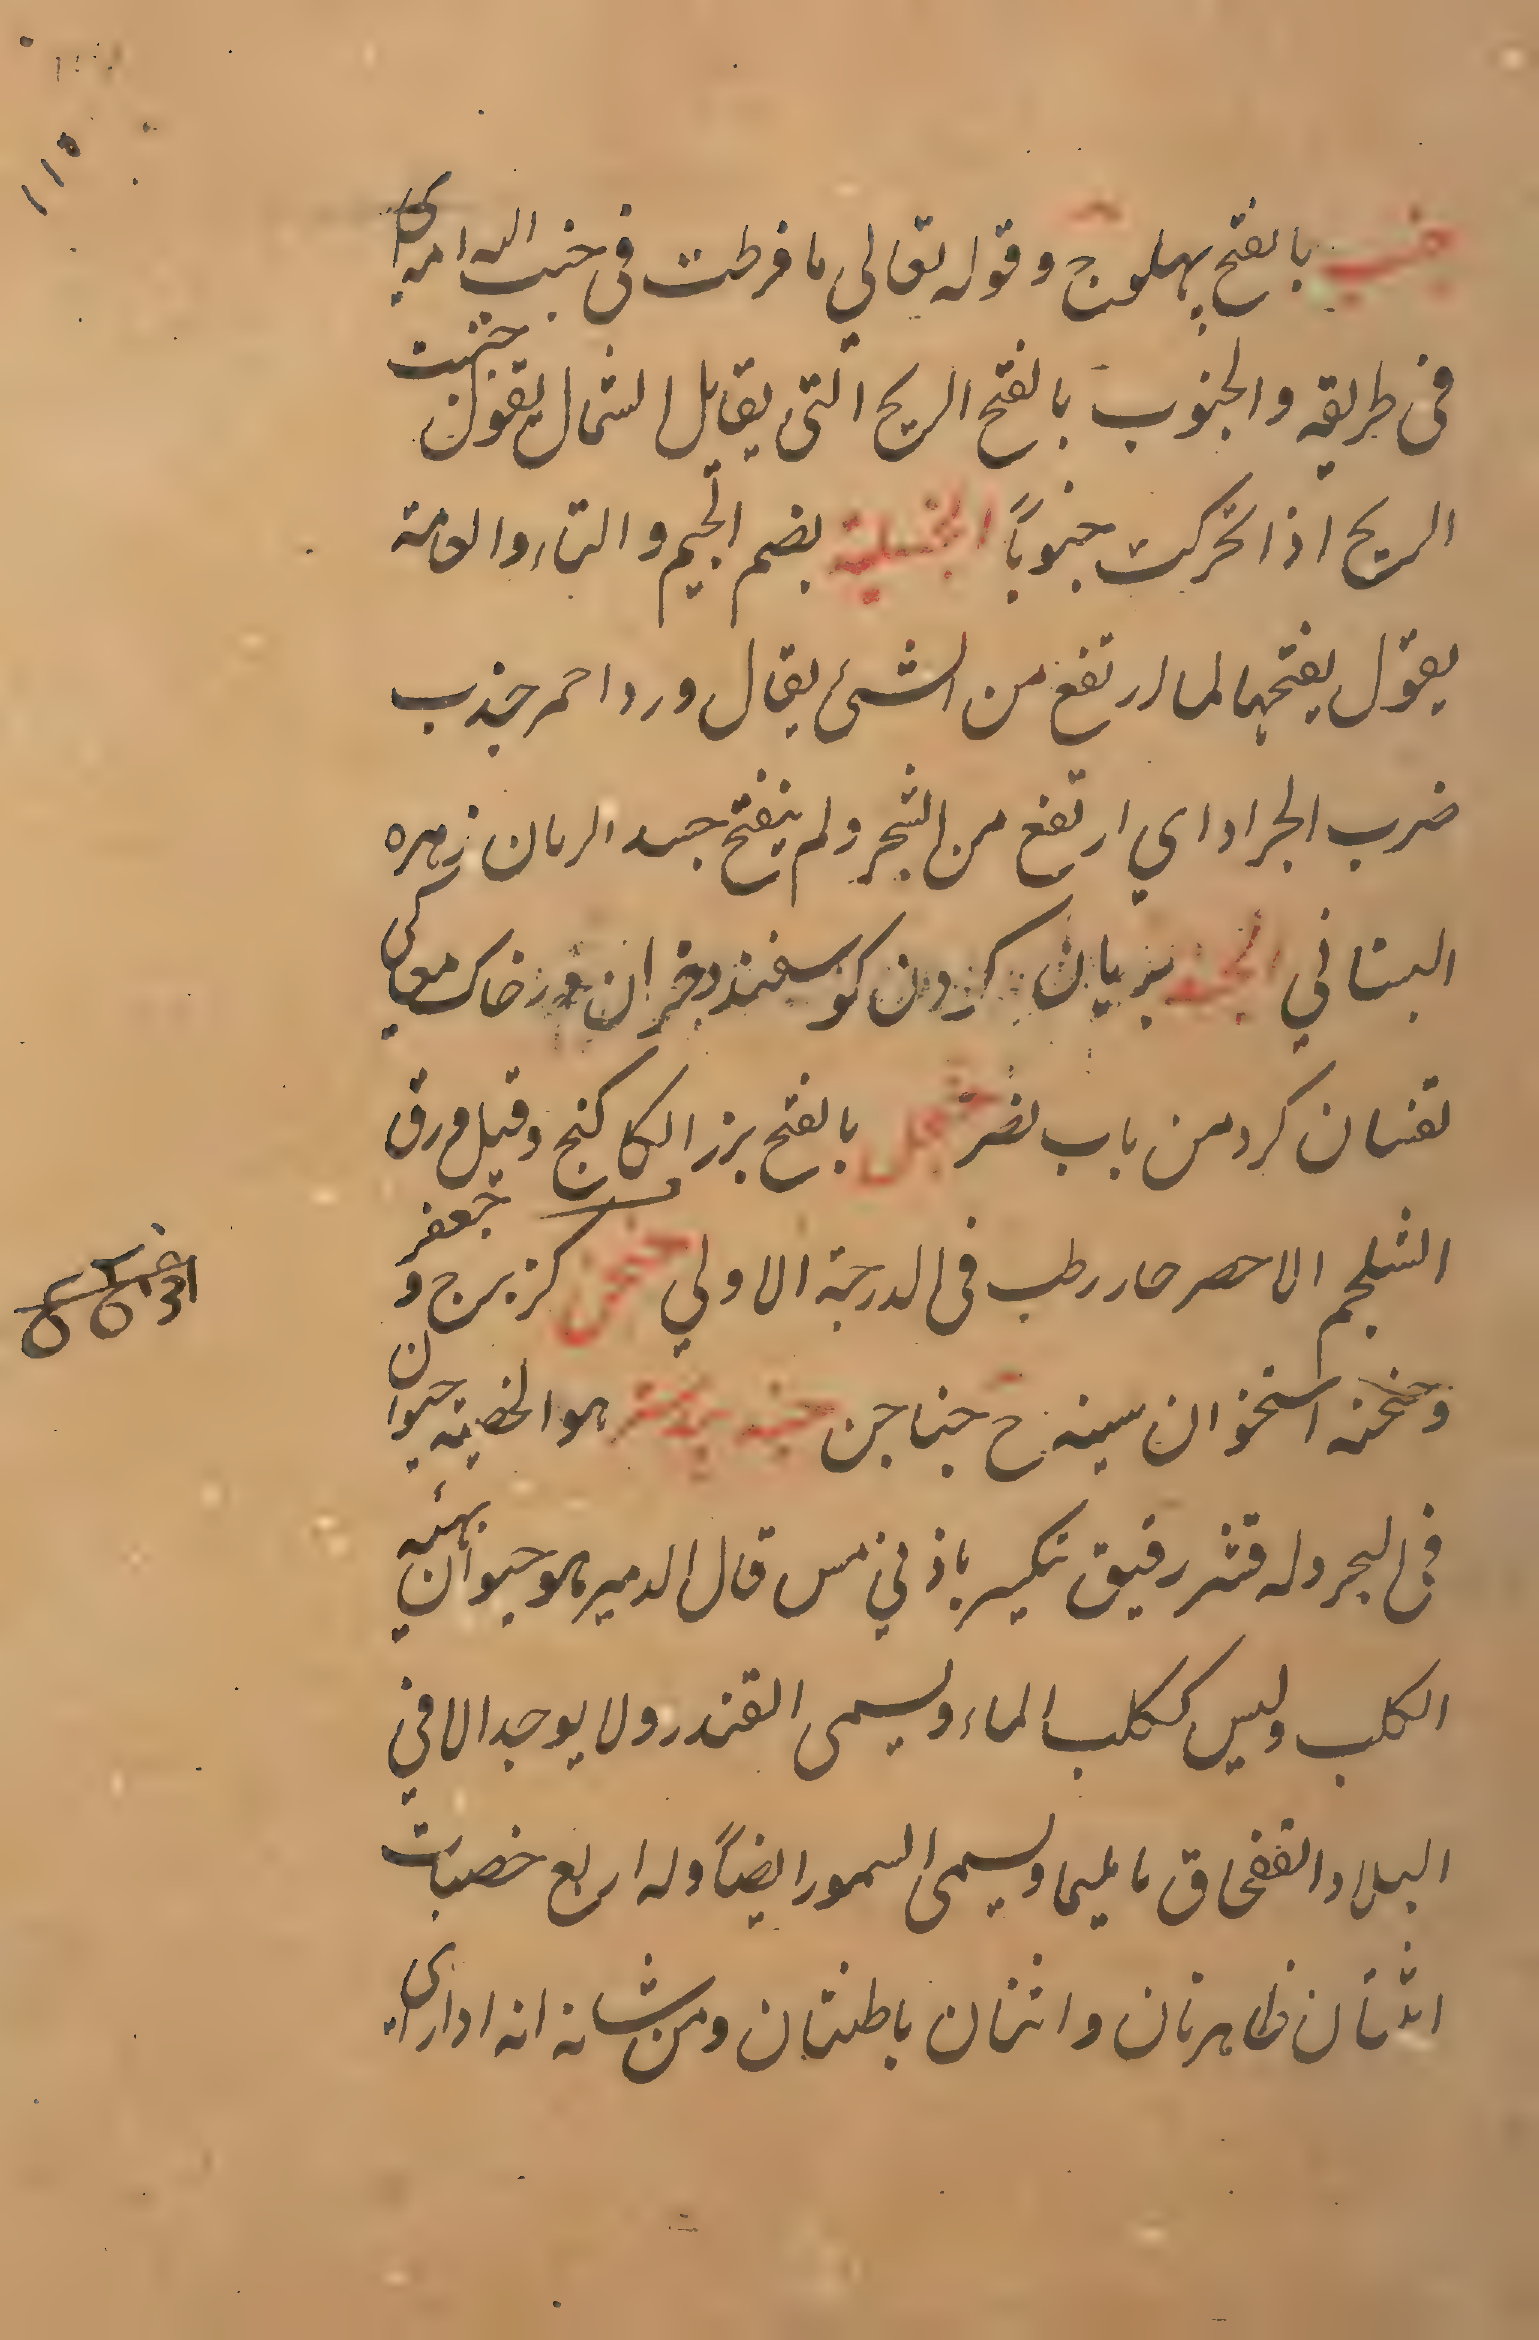 ۱۱۵
جنب بالفتح پهلوج وقوله تعالي ما فرطت فى جنب الله اى
فى طريقه والجنوب بالفتح الريح التى يقابل الشمال يقول جنبت
الريح اذا تحركت جنوباً بضم الجيم والتاء والعامة
يقول بفتحها لما ارتفع من الشئ يقال ورد احمر جنذب
ضرب الجراد اي ارتفع من الشجر ولم ينفتح جسد الرمان زهره
البستاني بريان كردن كوسفند وخر ان در خاك
كرد من باب نصر بالفتح بزر الكاكنج وقيل ورق
الشلجم الاحصر حار رطب فى الدرجة الاولي جنجن كزبرج و جعفر
وجنجنه استخوان سينه ج جناجن جند بيدستر هو الخصية حيوان
فى البحر وله قشر رقيق تكيسر باذني مس قال الدمير هو حيوان بهئية
الكلب وليس ككلب الماء ويسمى القندر ولا يوجد الا في
البلاد القفخاق ما يليها ويسمى السمور ايضاً وله اربع خصيات
اثنتان ظاهرتان واثنتان باطنتان ومن شانه انه اذا راى